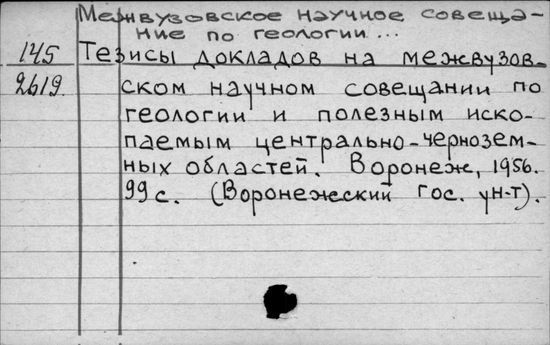 Межвузовское научное совеща-
ние по геологии...
145 Тезисы докладов на межвузов-
2619. ском научном совещании по
геологии и полезным иско-
паемым центрально-чернозем-
ных областей. Воронеж, 1956.
99 с. (Воронежский Гос. ун-т).